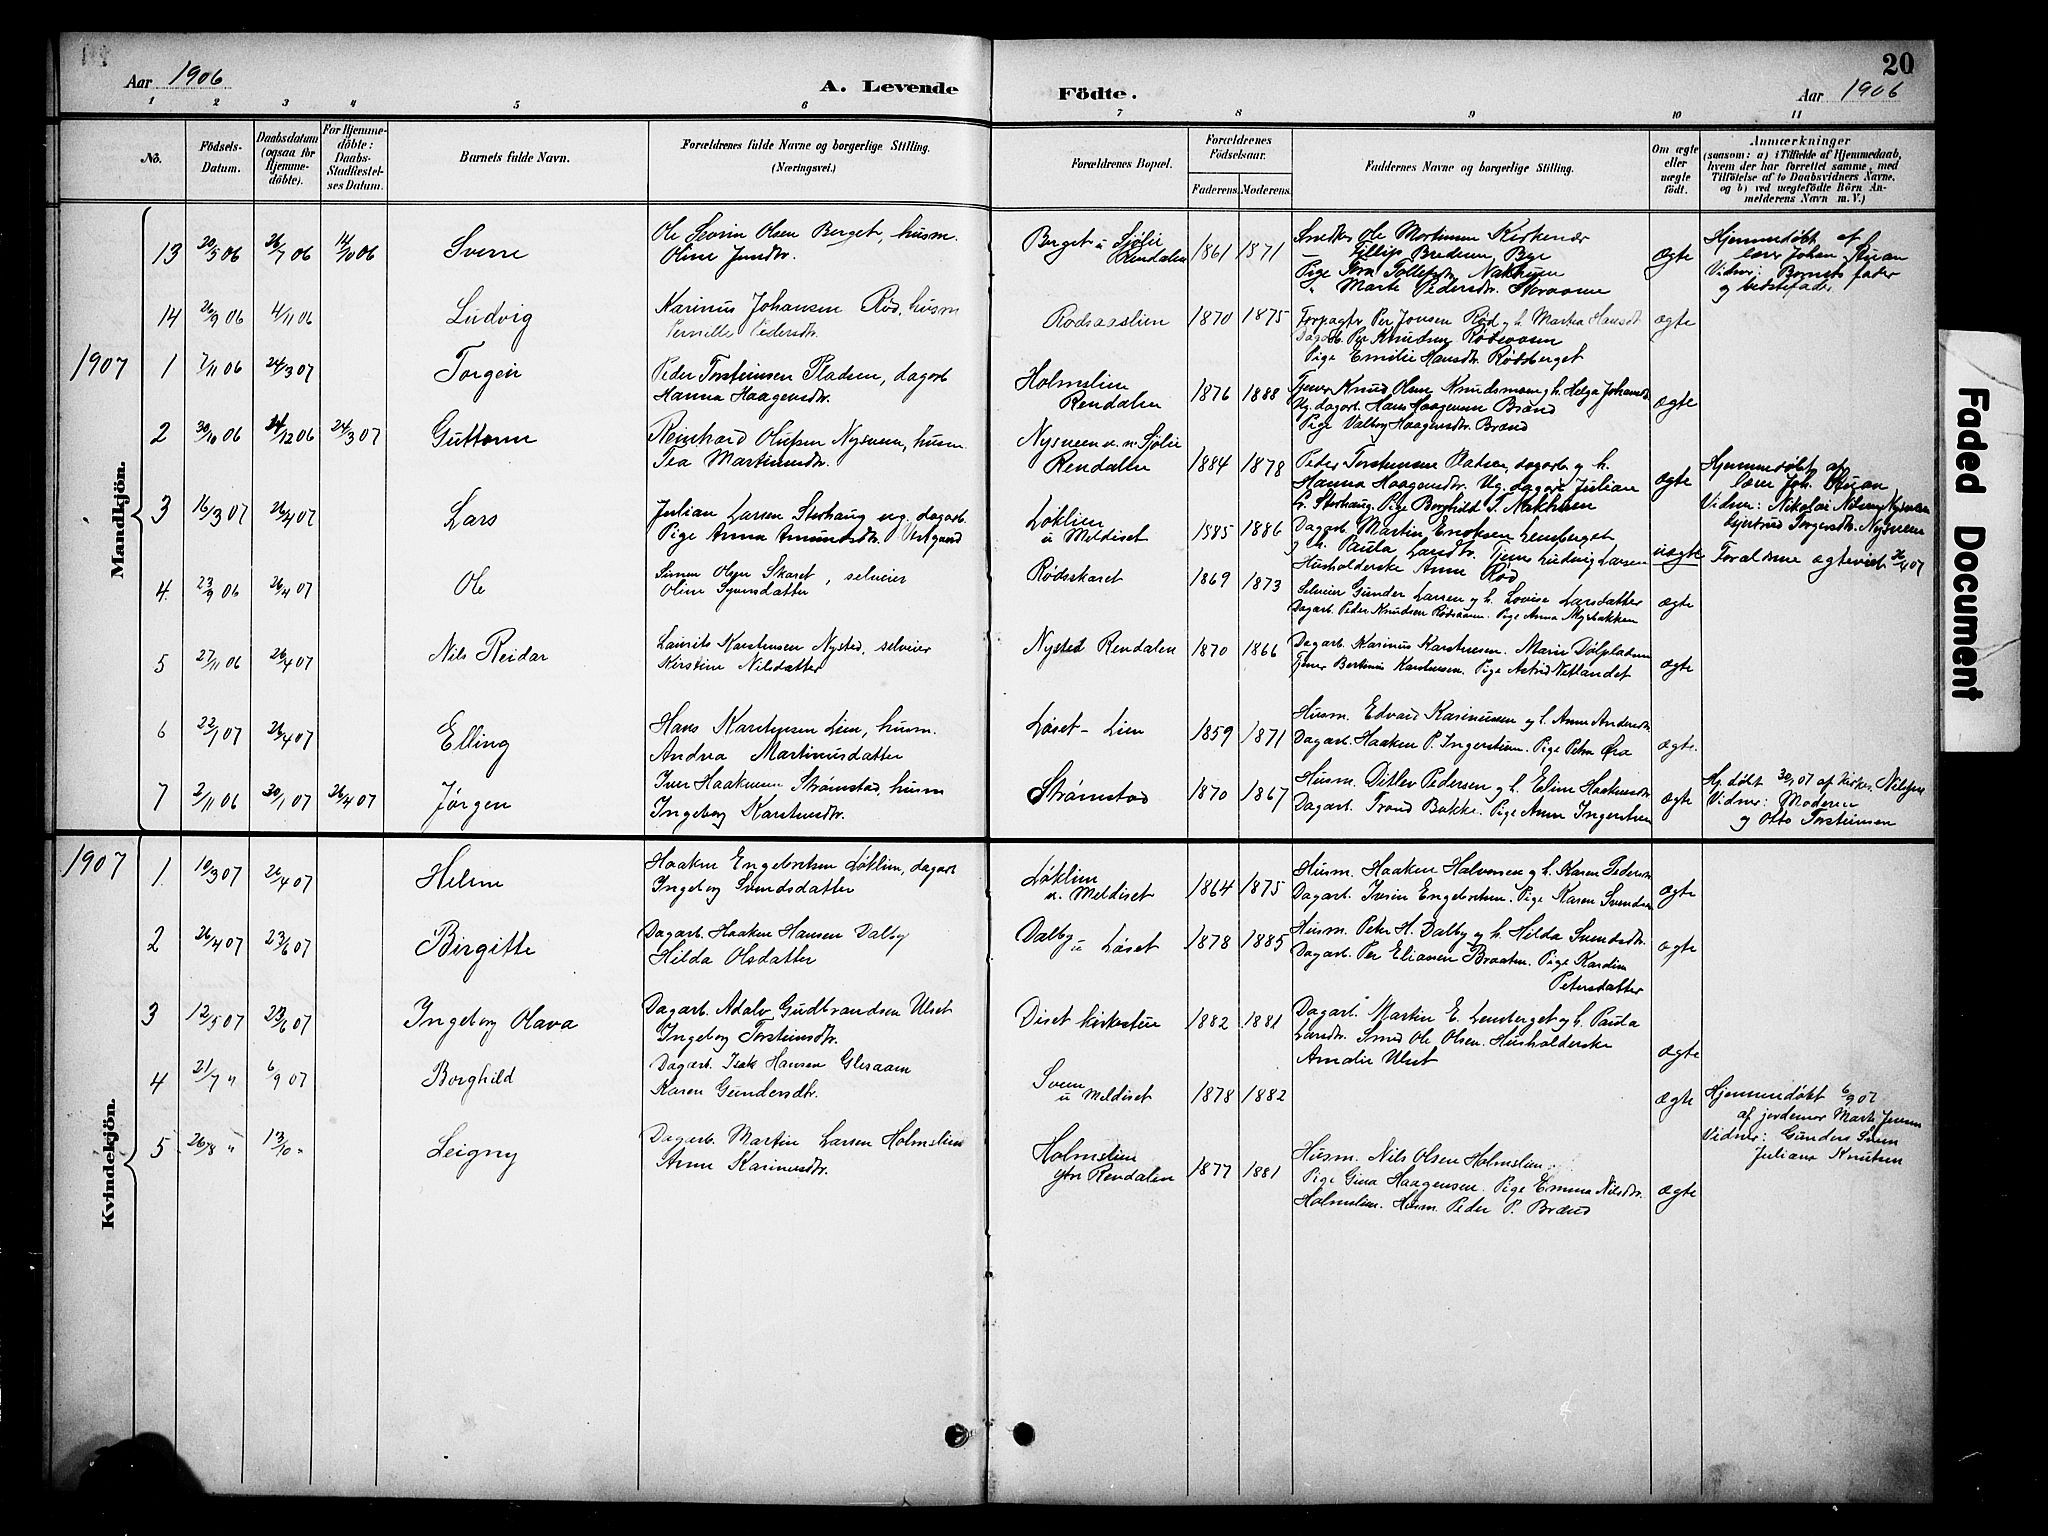 20
Aar 1906
A. Levende
Födte.
Aar 1906
1 2 3 4 5 6 7 8 9 10 11
No.
Födsels-Datum.
Daabsdatum (ogsaa for Hjemme-döbte).
For Hjemme-döbte: Daabs-Stadfæstel-ses Datum.
Barnets fulde Navn.
Forældrenes fulde Navne og borgerlige Stilling.
(Næringsvei.)
Forældrenes Bopæl.
Forældrenes Födselsaar.
Faderens. Moderens.
Faddernes Navne og borgerlige Stilling.
Om ægte eller uægte födt.
Anmærkninger
(saasom: a) i Tilfælde af Hjemmedaab,
hvem der har forrettet samme, med
Tilföielse af to Daabsvidners Navne.
og b) ved uægtefödte Börn An-
melderens Navn m. V.)
Mandkjön.
13 30/5 06 26/7 06 14/10 06 Sverre
Ole Severin Olsen Berget, husm.
Oline Jensdtr.
Berget u Sjølie
Rendalen
1861 1871
Smedkr Ole Mortinsen Kirkenær
Fillip Bredesen, Bye
Pige Tollefsdtr. Nakhuen
" Marte Pedersdtr.
ægte
Hjemmedøbt af
lærer Johan Stuan
Vidner: Barnets fader
og bedstefader
14 26/9 06 4/11 06 Ludvig
Karinus Johansen Rød, husm
Pernille Pedersdtr.
Rødsaslien
1870 1875
Forpagter Per Jonsen Rød og h. Martea Hansdt.
Dagarb. Per Knudsen Rødsaasen
Pige Emilie Hansdtr. Rødsberget
ægte
1907
1 7/11 06 24/3 07 Torgeir
Peder Torsteinsen Pladsen, dagarb
Hanna Haagensdtr.
Holmslien
Rendalen
1876 1888
Tjener Knud Olsen Knudsmoen g h. Helga Johansdt.
Ug. dagarb. Hans Haagensen Brænd
Pige Valborg Haagensdtr. Brænd
ægte
2 30/10 06 24/12 06 24/3 07 Guttorm
Reinhard Olufsen Nysveen, husm
Tea Martinusdtr.
Nysveen u. n. Sjølie
Rendalen
1884 1878
Peder Torsteinsen Pladsen, dagarb. g h.
Hanna Haagensdtr. Ug. dagarb Julian
L. Storhaug. Pige Borghild T. Nakhuen
ægte
Hjemmedøbt af
lærer Joh. Stuan
Vidner: Nikolai Nysveen
Gjertrud Torgersdtr. Nysveen
3 16/3 07 26/4 07 Lars
Julian Larsen Storhaug ug. dagarb.
Pige Anna Amundsdtr. Vestgaard
Løklien
u Meldiset
1885 1886
Dagarb. Martin Eriksen Lemberget
g h. Paula Larsdtr. Tjener Ludvig Larsen
Husholderske Anne Rød
uægte
Forældrene ægteviet 26/4 07
4. 23/9 06 26/4 07 Ole
Simen Olsen Skaret, selveier
Oline Syversdatter
Rødsskaret
1869 1873
Selveier Gunder Larsen g h. Lovise Larsdatter
Dagarb. Peder Knudsen Rødsaasen. Pige Anna Myrbakken
ægte
5 27/11 06 26/4 07 Nils Reidar
Laurits Karstensen Nysted, selveier
Kirstine Nilsdatter
Nysted Rendalen
1870 1866
Dagarb. Karinus Karstensen. Marie Dølpladsen
Tjener Bertinius Karstensen. Pige Astrid Netlandet
ægte
6 22/1 07 26/4 07 Elling
Hans Karstensen Lien, husm.
Andrea Martinusdatter
Løset-Lien
1859 1871
Husm. Edvard Karinusen g h. Anne Andersdt.
Dagarb. Haaken P. Ingerstuen. Pige Petra Øra
ægte.
7 2/11 06 30/1 07 26/4 07 Jørgen
Iver Haakensen Strømstad, husm
Ingeborg Karstensdtr.
Strømstad
1870 1867
Husm. Ditlev Pedersen g h. Eline Haakensdtr
Dagarb. Trond Bakke. Pige Anne Ingerstuen
ægte
Hj. døbt 30/1 07 af kirkes. Nilsen
Vidner: Moderen
og Otto Torsteinsen
1907
Kvindekjön.
1. 10/3 07 26/4 07 Helene
Haaken Engebretsen Løklien, dagarb
Ingeborg Svendsdatter
Løklien
u. Meldiset
1864 1875
Husm. Haaken Halvorsen g h. Karen Pedersen
Dagarb. Iver Engebretsen. Pige Karen Svendsen
ægte
2 26/4 07 23/6 07 Birgitte
Dagarb. Haaken Hansen Dalby
Hilda Olsdatter
Dalby u Løset
1878 1885
Husm. Peter H. Dalby g h. Hilda Svendsdtr.
Dagarb. Per Eliasen Braaten. Pige Kardine
Petersdatter
ægte
3 12/5 07 23/6 07 Ingeborg Olava
Dagarb. Adolv Gudbrandsen Ulset
Ingeborg Torsteinsdtr.
Diset kirkestuen
1882 1881
Dagarb. Martin E. Lemberget g h. Paula
Larsdtr. Smed Ole Olsen. Husholderske
Amalie Ulset
ægte
4 21/7 " 6/9 07 Borghild
Dagarb. Isak Hansen Glesaaen
Karen Gundersdtr.
Sveen
u Meldiset
1878 1882
ægte
Hjemmedøbt 6/9 07
af jordemor Marte Jensen
Vidner: Gunders Sveen
Juliana Knutsen
5 26/8 " 13/10 " Leigny
Dagarb. Martin Larsen Holmslien
Anne Karinusdtr.
Holmslien
ytre Rendalen
1877 1881
Husm. Nils Olsen Holmslien.
Pige Gina Haagensen. Pige Emma Nilsdtr.
Holmslien. Husm. Peder P. Brænd
ægte
Faded Document